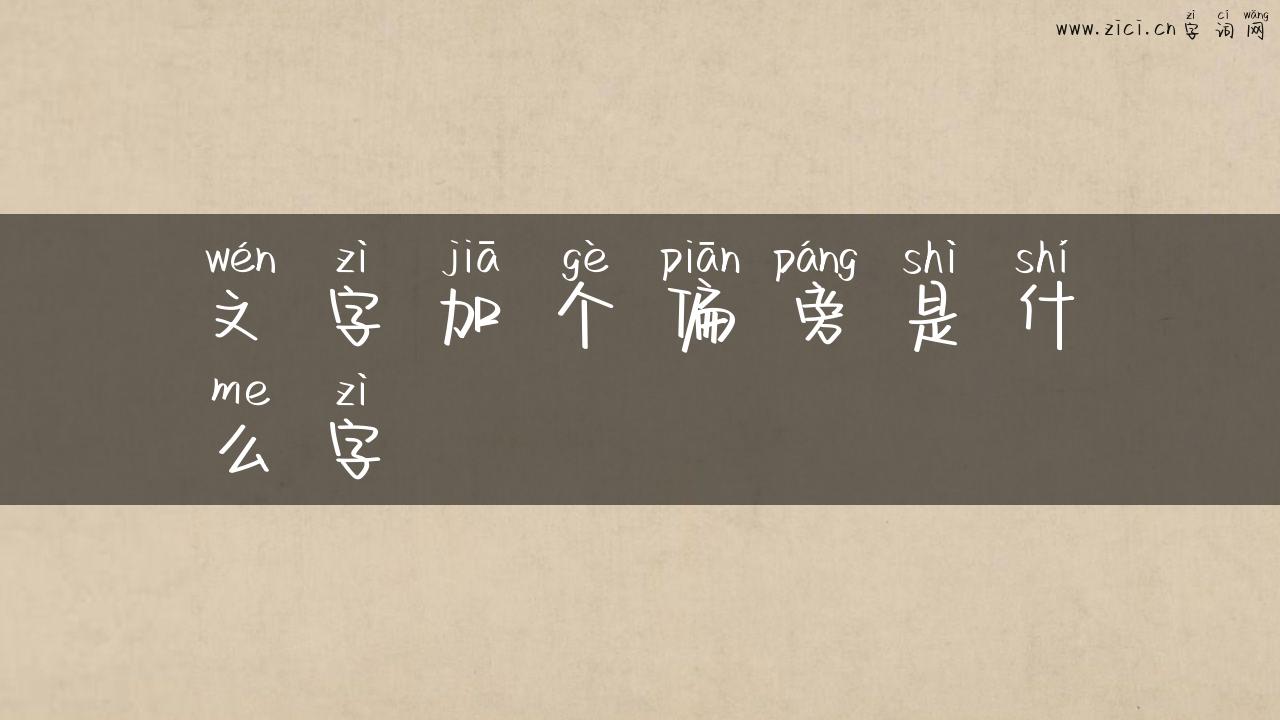 zì cí wǎng
www.zici.cn 字 词 网
wén zì jiā gè piān páng shì shí
文 字 加 个 偏 旁 是 什
me zì
么 字